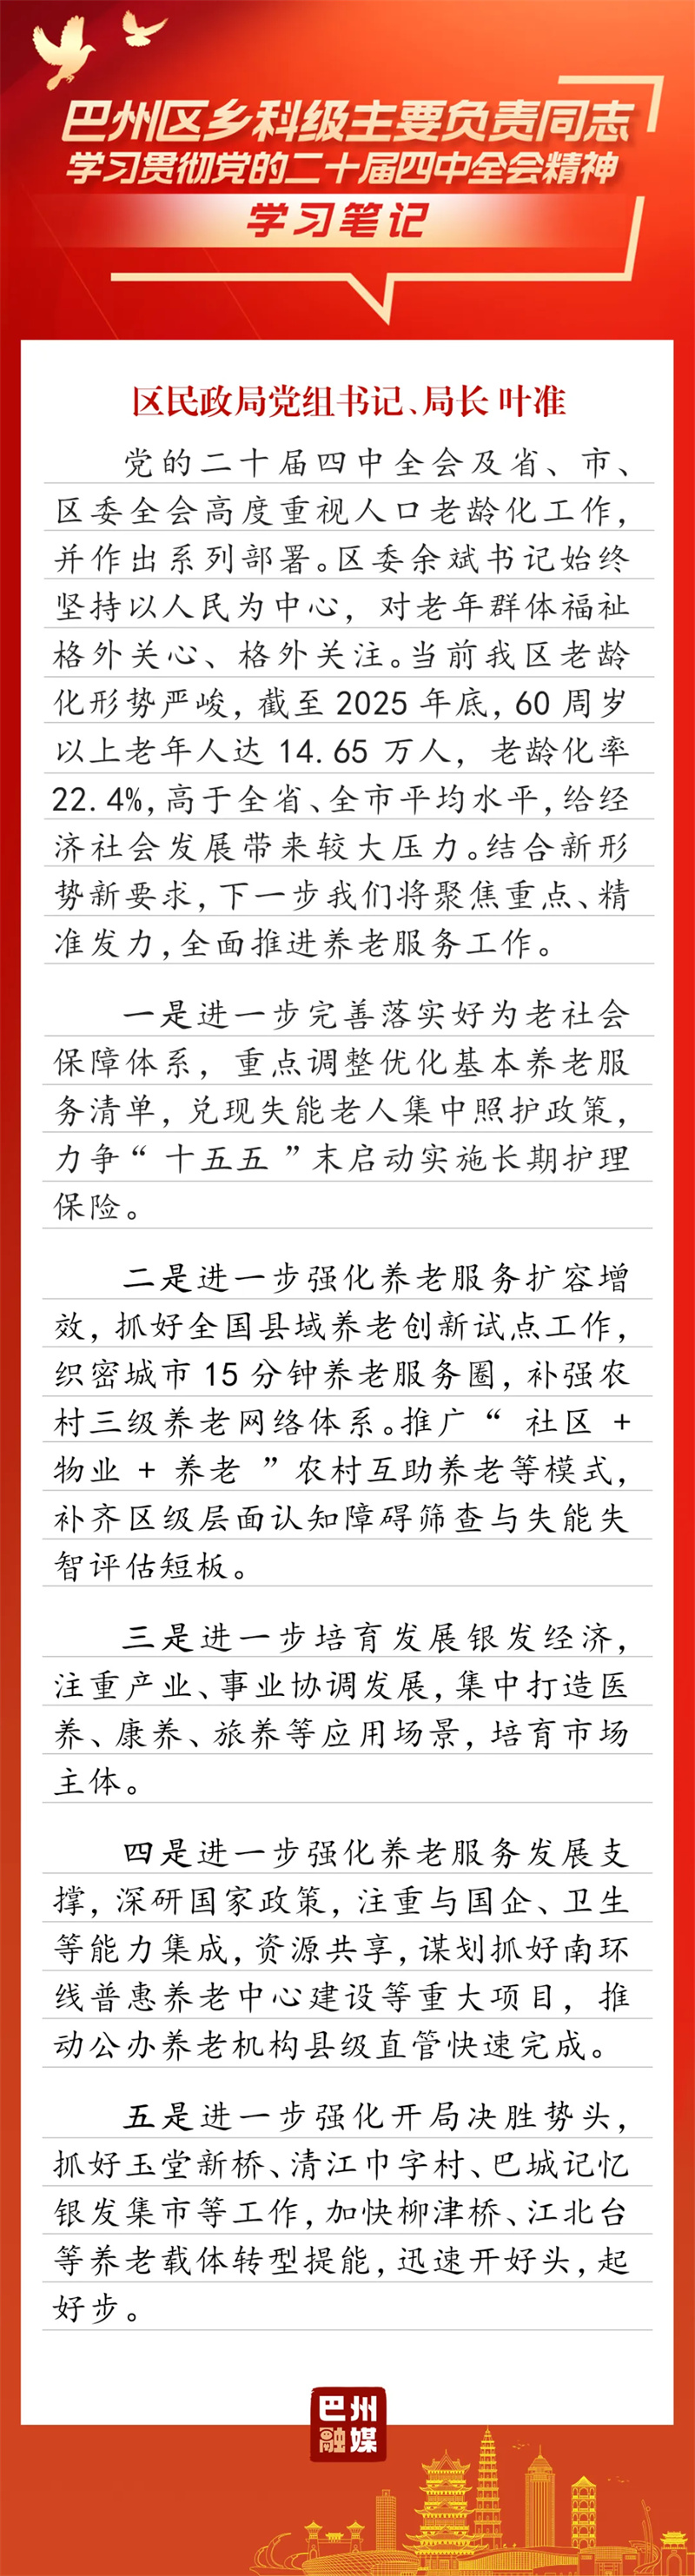 巴州区乡科级主要负责同志
学习贯彻党的二十届四中全会精神
学习笔记
区民政局党组书记、局长 叶准
党的二十届四中全会及省、市、
区委全会高度重视人口老龄化工作，
并作出系列部署。区委余斌书记始终
坚持以人民为中心，对老年群体福祉
格外关心、格外关注。当前我区老龄
化形势严峻，截至 2025 年底，60 周岁
以上老年人达 14.65 万人，老龄化率
22.4%，高于全省、全市平均水平，给经
济社会发展带来较大压力。结合新形
势新要求，下一步我们将聚焦重点、精
准发力，全面推进养老服务工作。
一是进一步完善落实好为老社会
保障体系，重点调整优化基本养老服
务清单，兑现失能老人集中照护政策，
力争“ 十五五 ”末启动实施长期护理
保险。
二是进一步强化养老服务扩容增
效，抓好全国县域养老创新试点工作，
织密城市 15 分钟养老服务圈，补强农
村三级养老网络体系。推广“ 社区 +
物业 + 养老 ”农村互助养老等模式，
补齐区级层面认知障碍筛查与失能失
智评估短板。
三是进一步培育发展银发经济，
注重产业、事业协调发展，集中打造医
养、康养、旅养等应用场景，培育市场
主体。
四是进一步强化养老服务发展支
撑，深研国家政策，注重与国企、卫生
等能力集成，资源共享，谋划抓好南环
线普惠养老中心建设等重大项目，推
动公办养老机构县级直管快速完成。
五是进一步强化开局决胜势头，
抓好玉堂新桥、清江巾字村、巴城记忆
银发集市等工作，加快柳津桥、江北台
等养老载体转型提能，迅速开好头，起
好步。
巴州
融媒